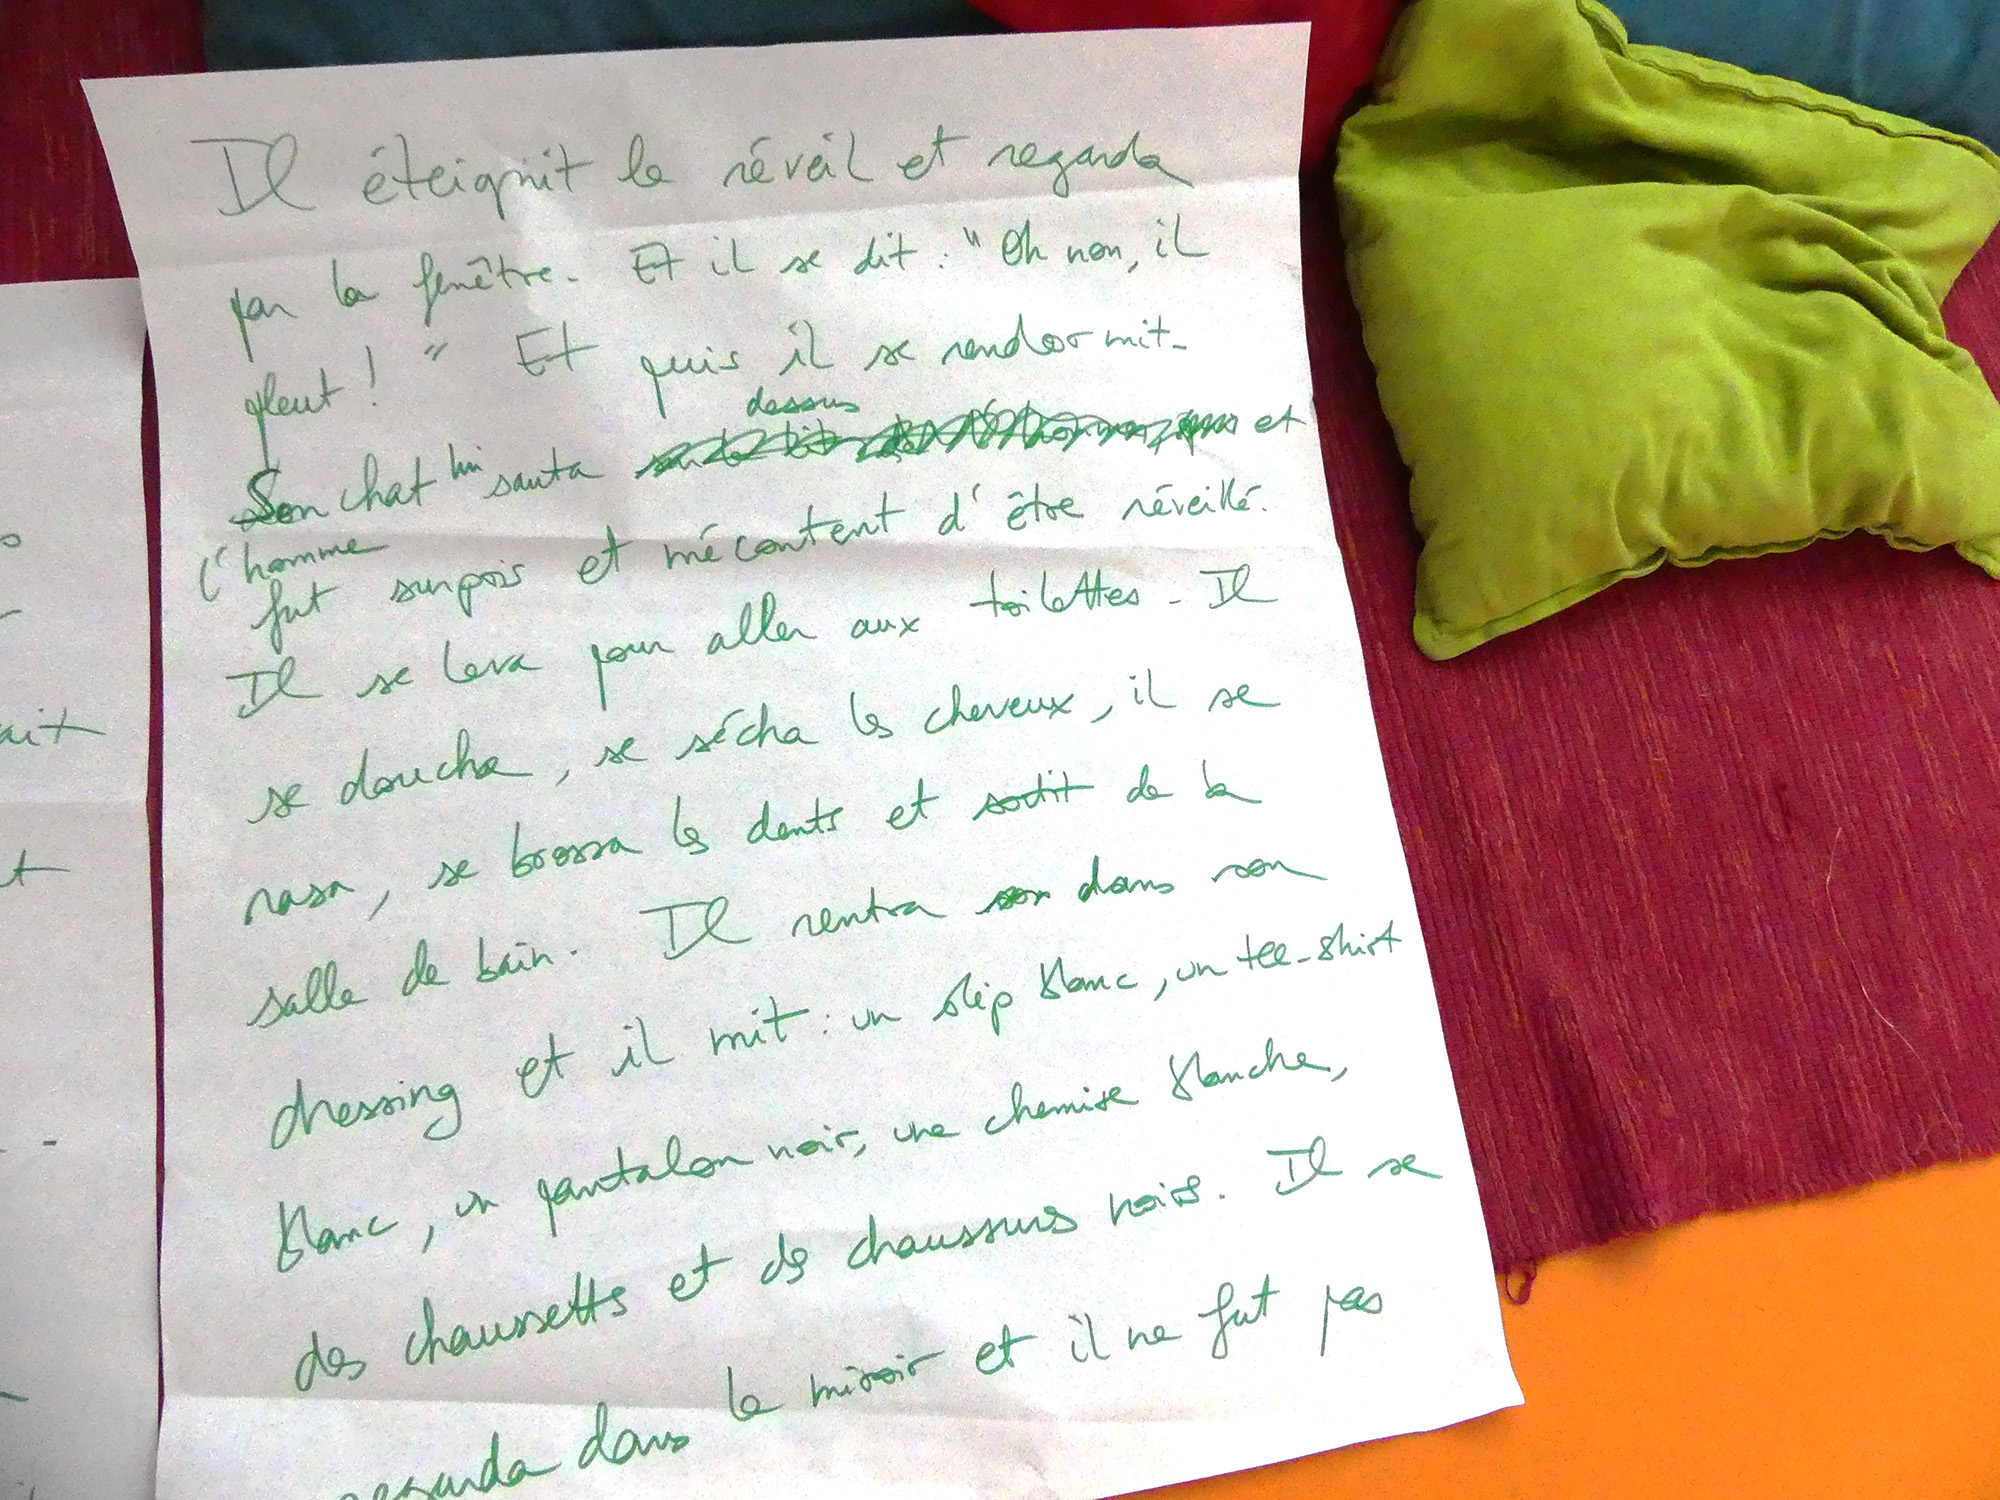 Il éteignit le réveil et regarda
par la fenêtre. Et il se dit : "Oh non, il
pleut ! " Et puis il se rendormit.
dessus
Son chat lui sauta et
l'homme
fut surpois et mécontent d'être réveillé.
Il se leva pour aller aux toilettes. Il
se doucha, se sécha les cheveux, il se
rasa, se brossa les dents et sortit de la
salle de bain. Il rentra dans son
dressing et il mit : un slip blanc, un tee-shirt
blanc, un pantalon noir, une chemise blanche,
des chaussettes et des chaussures noirs. Il se
regarda dans le miroir et il ne fut pas
ait
t